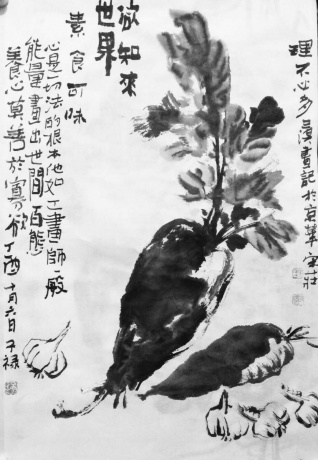 欲知來
世界
素食可味
心是一切法的根本他如工畫師般
能量畫出世間百態
養心莫善於寡欲丁酉十月六日子禄
理不必多漢畫記於京華宋莊